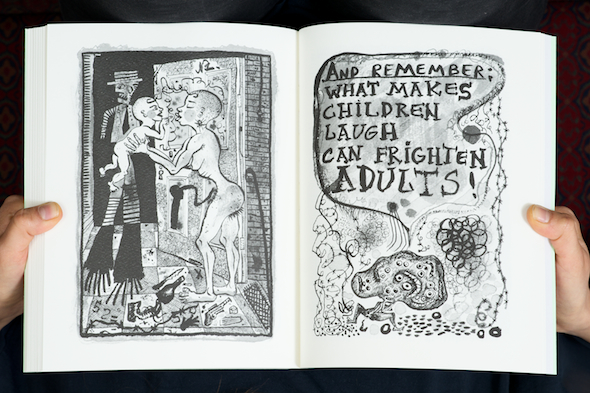 AND REMEMBER:
WHAT MAKES
CHILDREN
LAUGH
CAN FRIGHTEN
ADULTS!